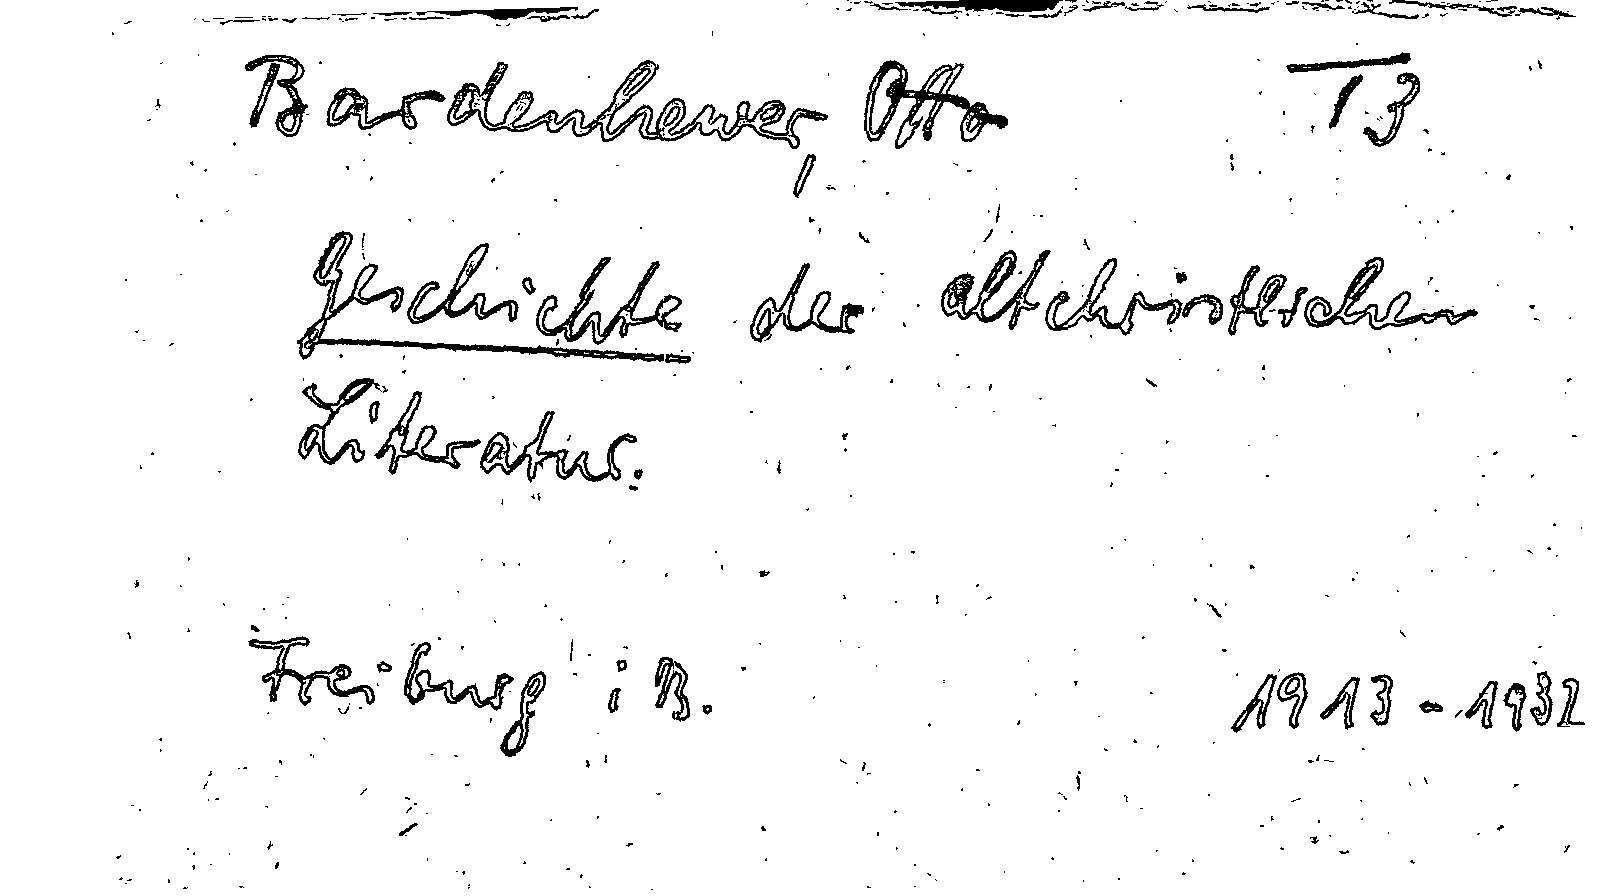 Bardenhewer, Otto T 3
Geschichte der altchristlichen
Literatur.
Freiburg i B. 1913-1932